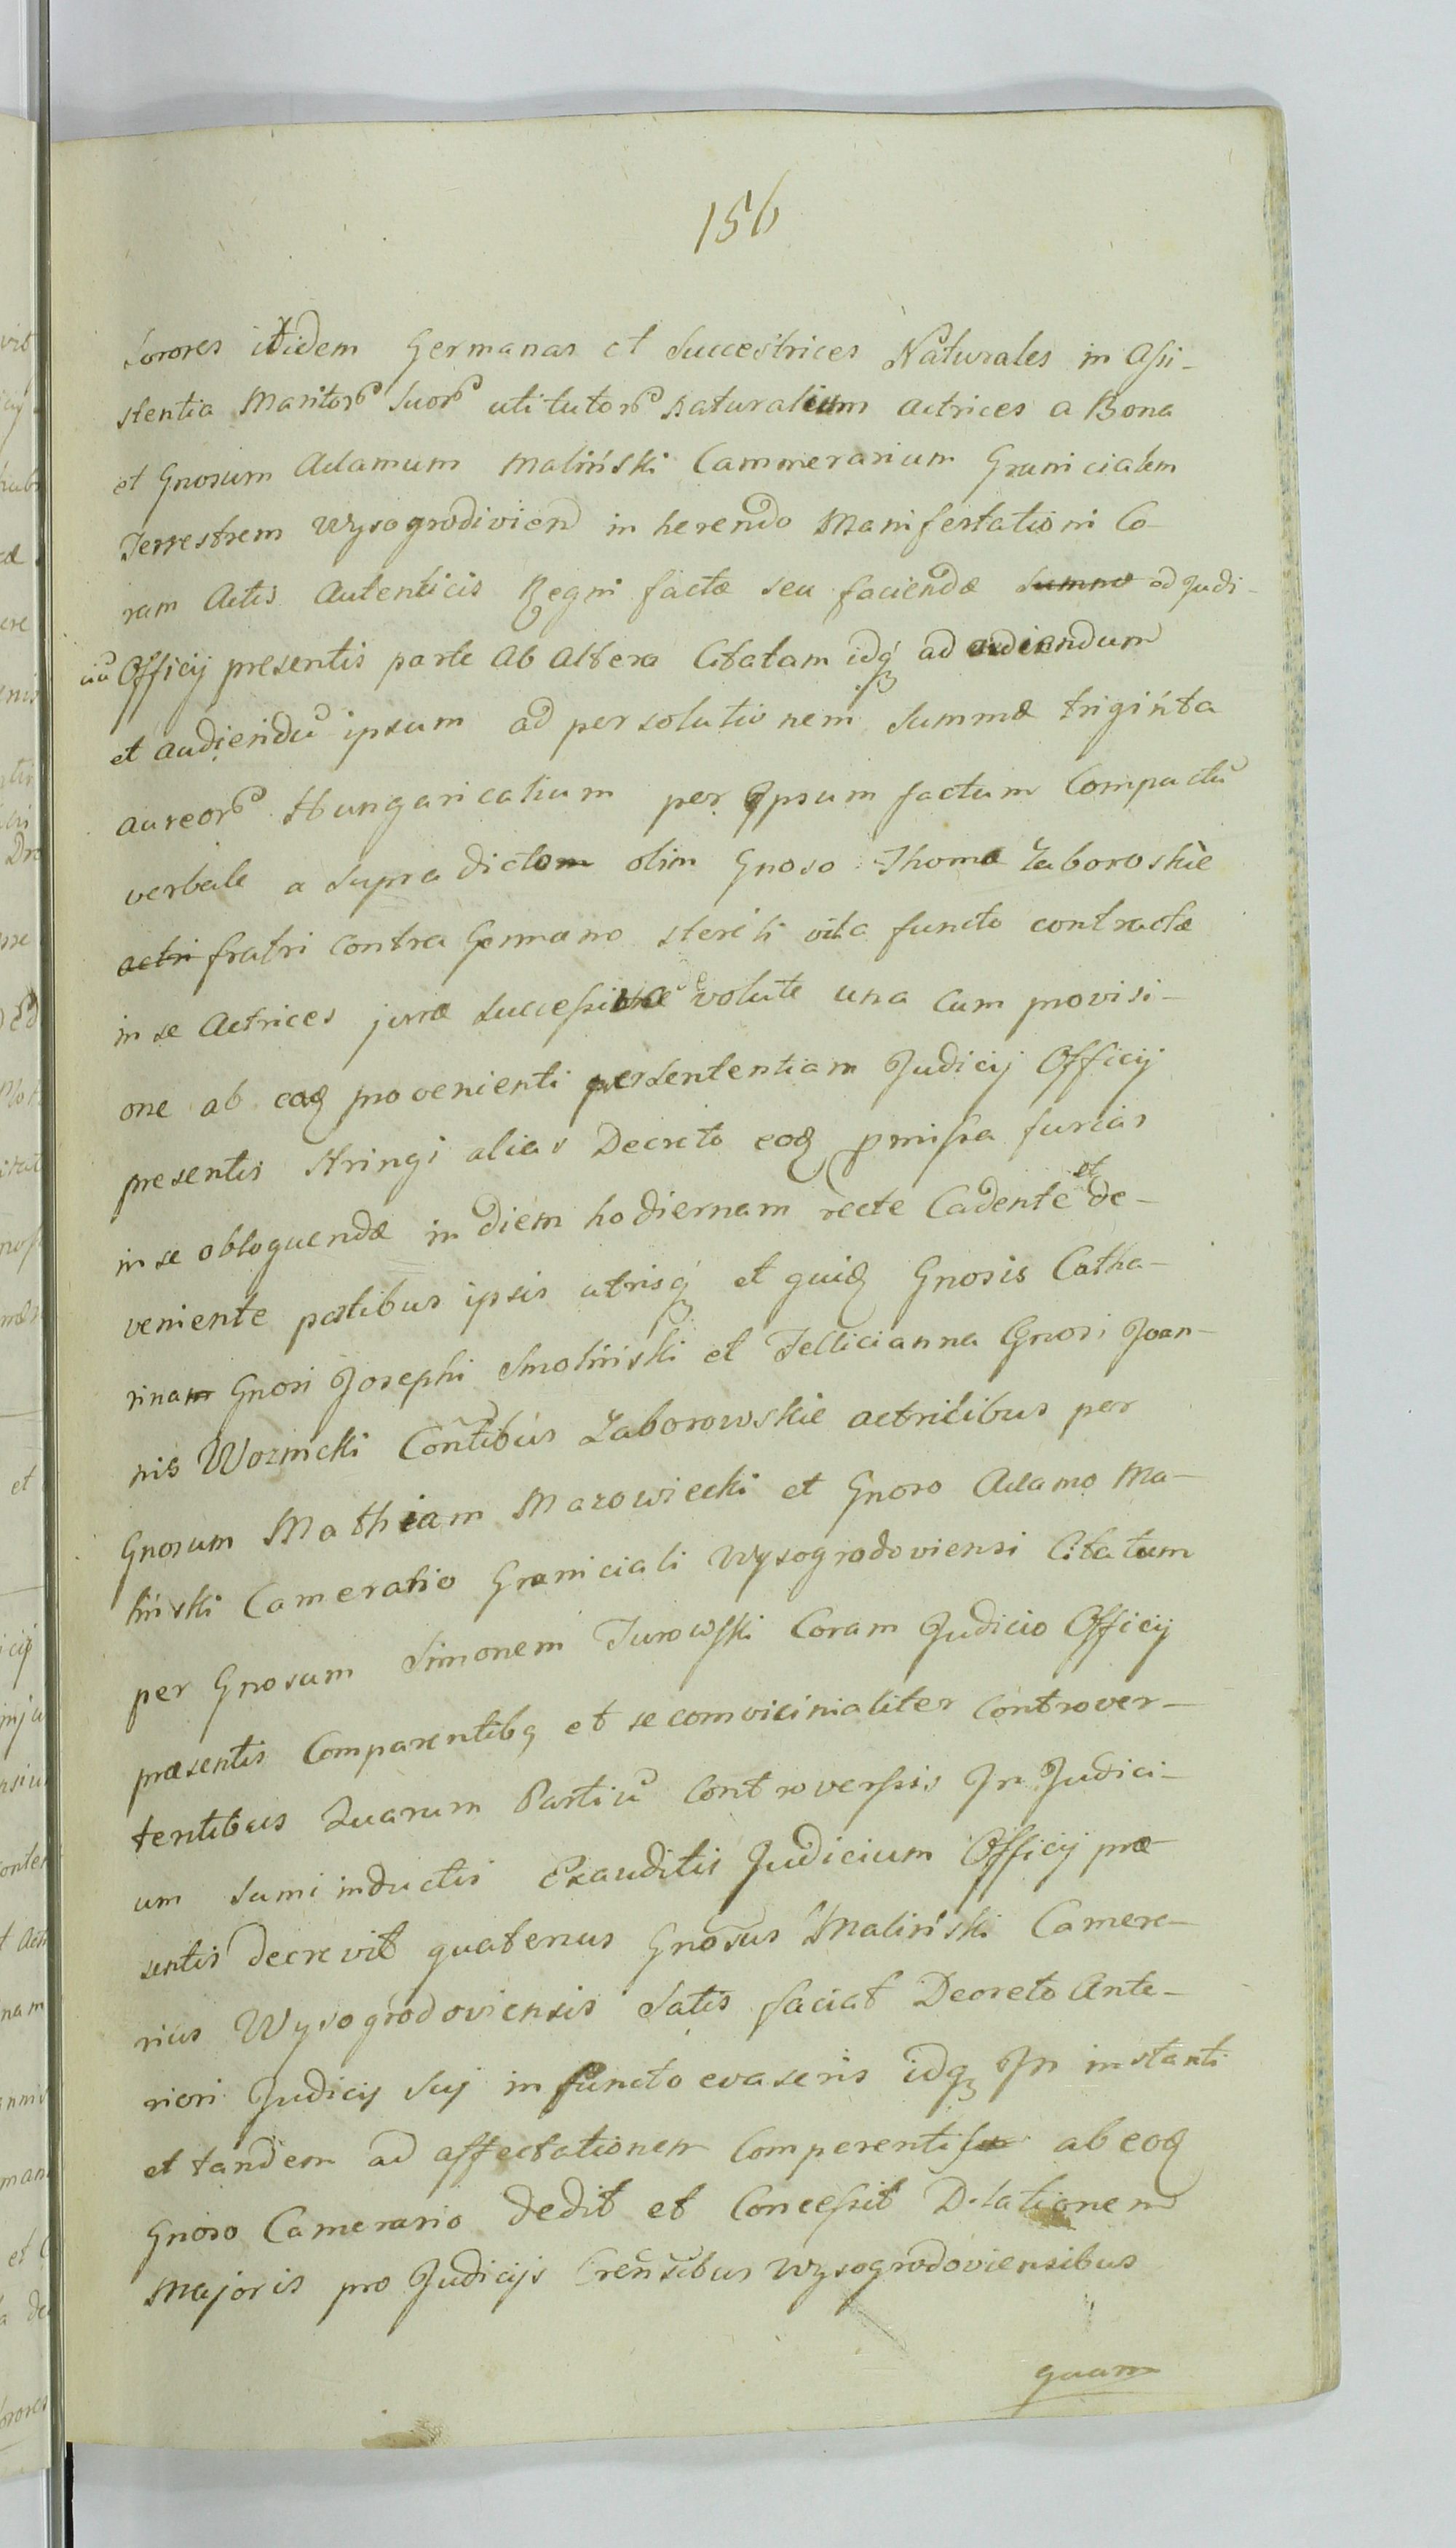 156
Sorores itidem Germanas et Successtrices Naturales in Assi-
stentia Maritor Suor uti tutor Naturalium actrices a Bona
et Gnosum Adamum Maliński Cammerarium Granicialem
Terrestrem Wysogrodivien in herendo Manifestationi Co-
ram Actis Autenticis Regni factæ seu faciendæ summæ ad Judi-
ciū Officij presentis parte Ab Altera Citatam idq ad audiendum
et audiendū ipsum ad persolutionem summæ triginta
aureor Hungaricalium per Ipsum factum Compactū
verbale a supra dictom olim Gnoso Thoma Zaboroskie
actri fratri contra Germano sterili vita functo contractæ
in se Actrices jure successive volute una cum provisi-
one ab eaq provenienti per sententiam Judicij Officij
presentis stringi alias Decreto eoq pmissa furias
in se obloquendæ in diem hodiernam recte Cadente et de-
veniente partibus ipsis utrisq et quiq Gnosis Catha-
rinam Gnosi Josephi Smoliński et Felliciannа Gnosi Joan-
nis Woznicki Contibus Zaborowskie actricibus per
Gnosum Mathiam Mazowiecki et Gnoso Adamo Ma-
liński Camerario Graniciali Wysogrodoviensi Citatum
per Gnosum Simonem Turowski Coram Judicio Officij
præsentis Comparentibq et se comvicinialiter controver-
tentibus Quarum Partiū Controversis In Judici-
um sumi inductis Exauditis Judicium Officij præ-
sentis decrevit quatenus Gnosus Maliński Camera-
rius Wysogrodoviensis Satis faciat Decreto Ante-
riori Judicij Suj in functo evaseris idq In instanti
et tandem ad affectationem Comperentis ab eoq
Gnoso Camerario dedit et Concessit Dilationem
Majoris pro Judicijs Crensibus Wysogrodoviensibus
quam